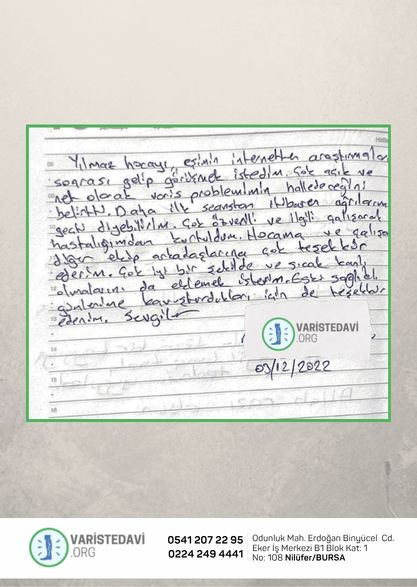 Yılmaz hocayı, eşimin internetten araştırmalar
sonrası gelip görüşmek istedim. Çok açık ve
net olarak varis problemimin halledeceğini
belirtti. Daha ilk seanstan itibaren ağrılarım
geçti diyebilirim. Çok özverili ve ilgili çalışarak
hastalığımdan kurtuldum. Hocama ve çalışa
diğer ekip arkadaşlarına çok teşekkür
ederim. Çok iyi bir şekilde ve sıcak kanlı
olmalarını da eklemek isterim. Eski sağlıklı
günlerime kavuşturdukları için de teşekkür
ederim. Sevgiler
VARİSTEDAVİ
.ORG
03/12/2022
VARİSTEDAVİ
.ORG
0541 207 22 95
0224 249 4441
Odunluk Mah. Erdoğan Binyücel Cd.
Eker İş Merkezi B1 Blok Kat: 1
No: 108 Nilüfer/BURSA